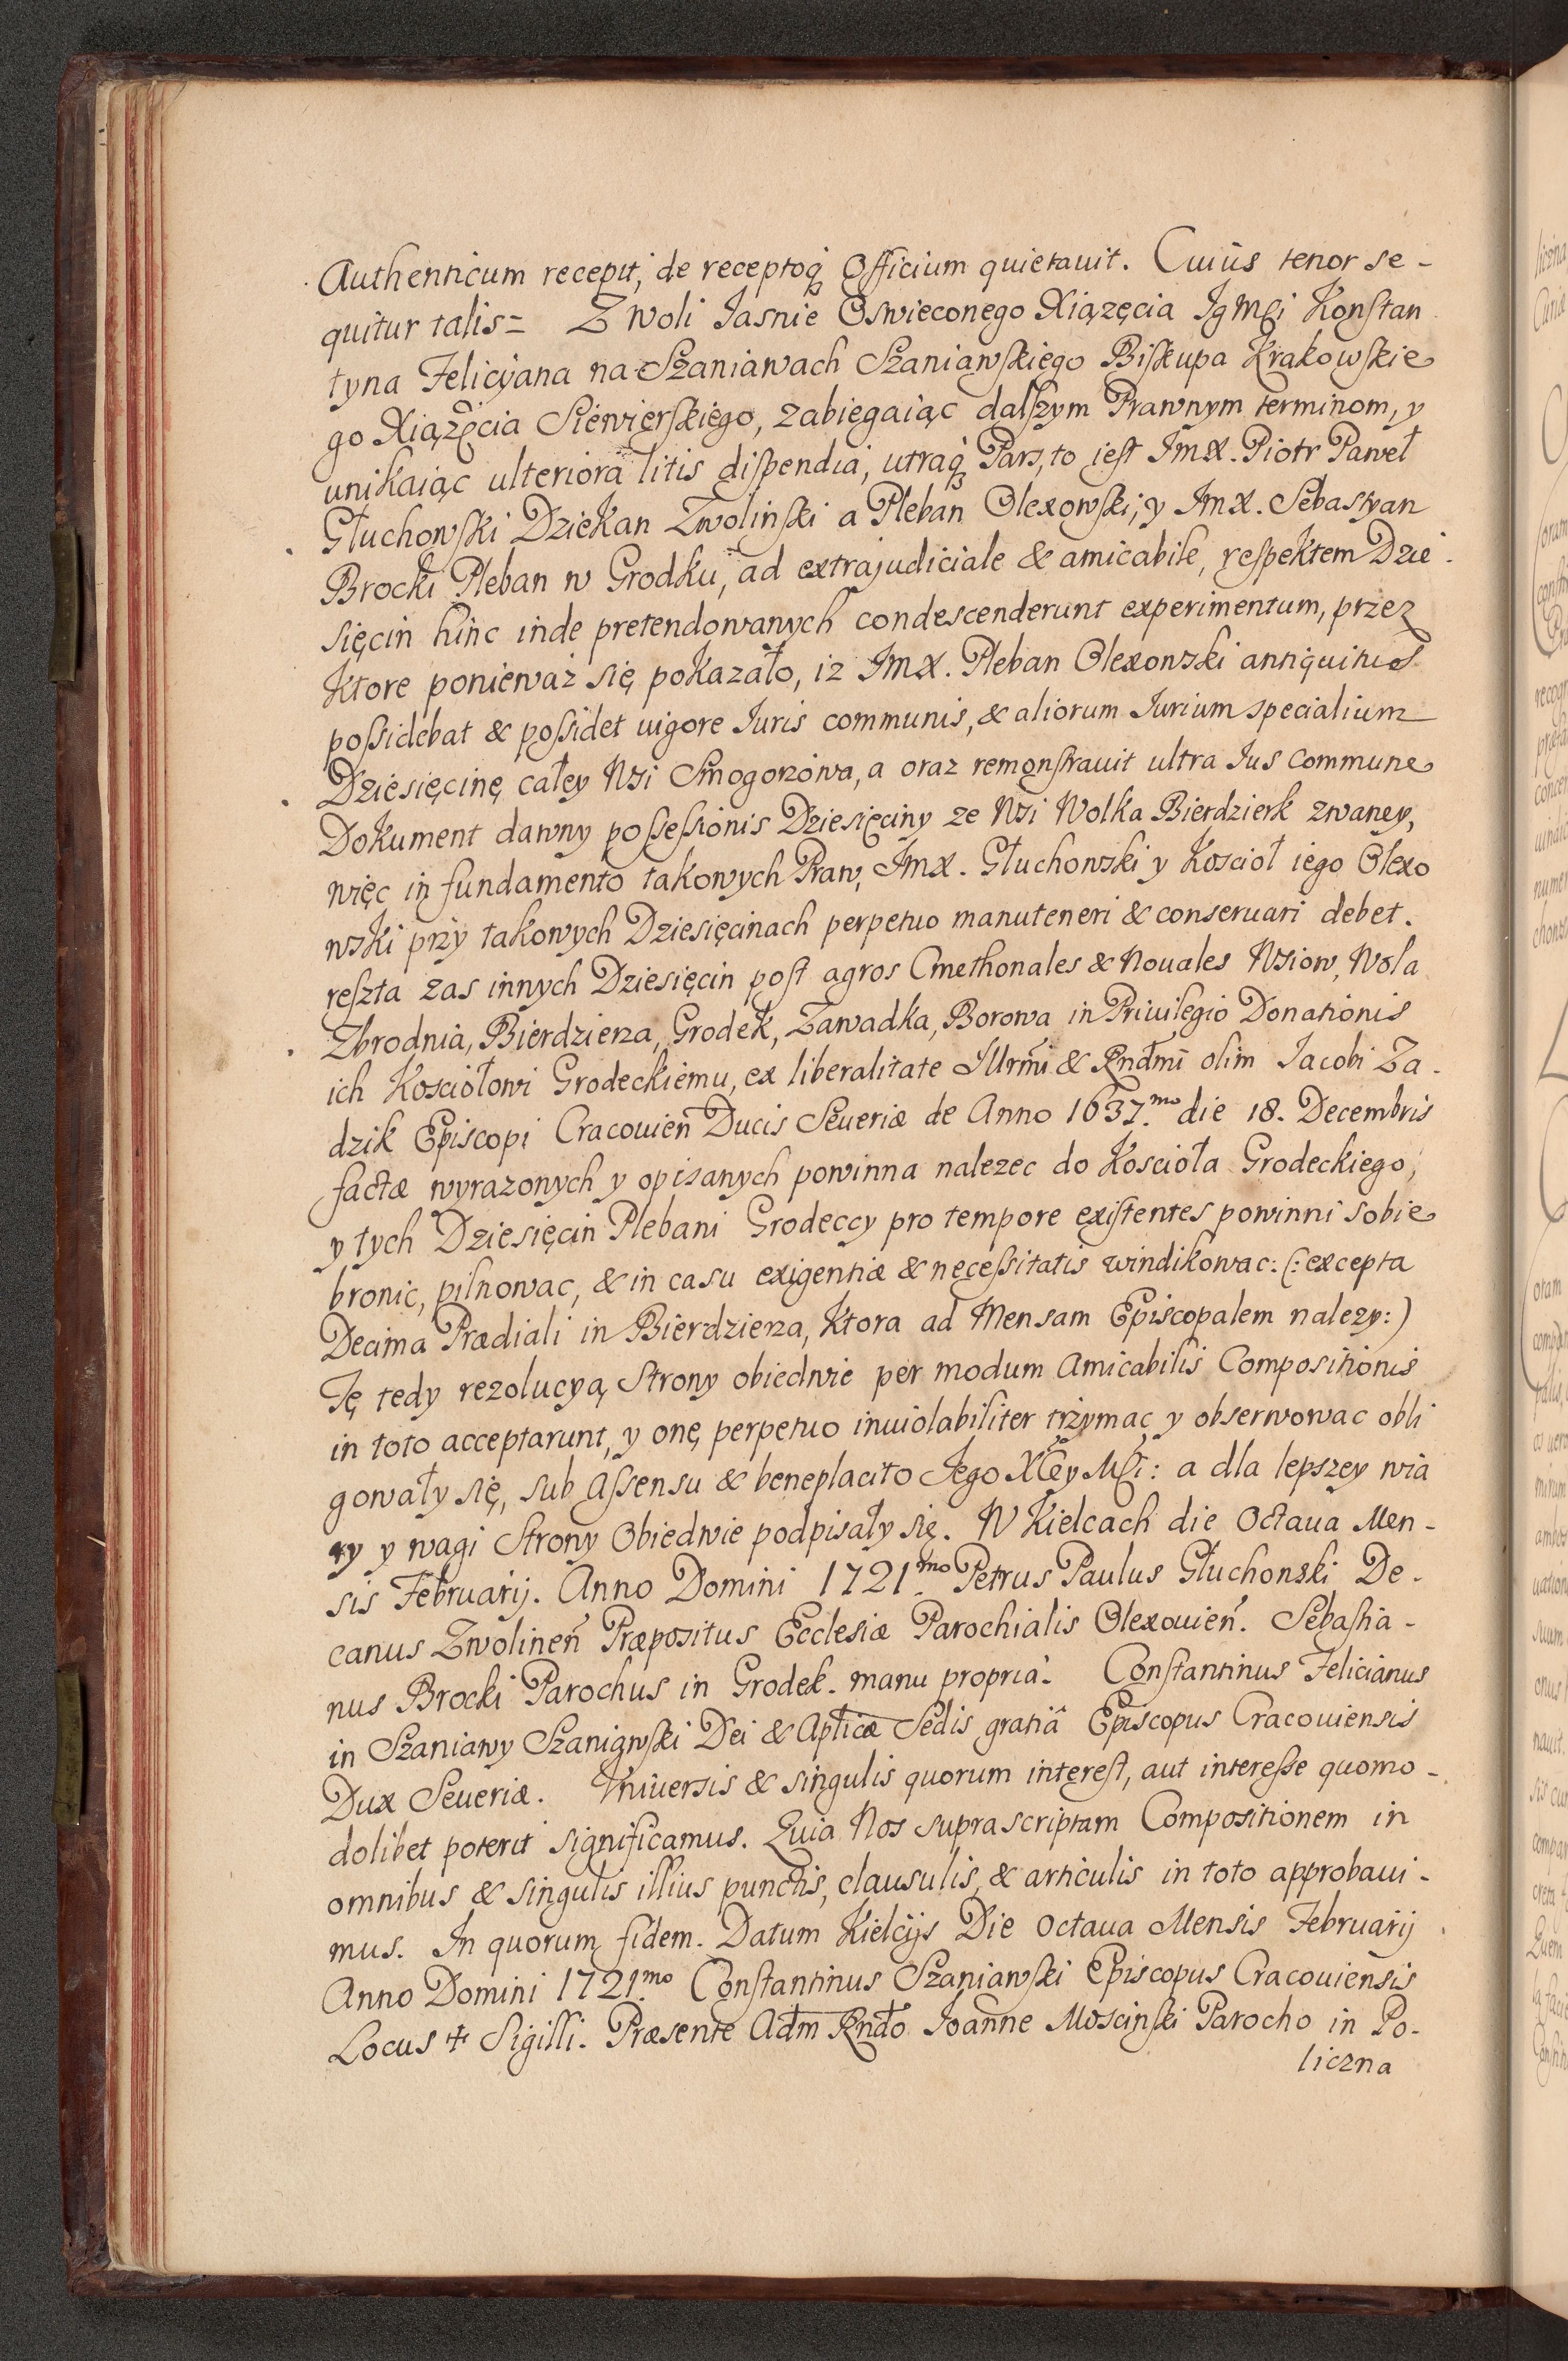 Authenticum recepit, de receptoq́ Officium quietauit. Cuius tenor se-
quitur talis= Z woli Iasnie Oswieconego Xiążęcia Jgmſci Konſtan
tyna Felicyana na Szaniawach Szaniawſkiego Biſkupa Krakowſkie
go Xiążęcia Siewierſkiego, zabiegaiąc dalſzym Prawnym terminom, y
unikaiąc ulteriora litis diſpendia, utraq́ Pars, to ieſt Jmx. Piotr Paweł
Głuchowſki Dziekan Zwolinſki a Pleban Olexowſki; y Jmx. Sebastyan
Brocki Pleban w Grodku, ad extrajudiciale & amicabile, reſpektem Dzie
sięcin hinc inde pretendowanych condescenderunt experimentum, przez
Ktore poniewaz się pokazało, iz Jmx. Pleban Olexowski antiquitus
poſsidebat & poſsidet uigore Iuris communis, & aliorum Iurium specialium
Dziesięcinę całey Wsi Smogorzowa, a oraz remonſtrauit ultra Ius commune
Dokument dawny poſseſsionis Dziesięciny ze Wsi Wolka Bierdzierk zwaney,
więc in fundamento takowych Praw, Jmx. Głuchowski y Kosciół iego Olexo
wski przy takowych Dziesięcinach perpetuo manuteneri & conseruari debet.
reſzta zas innych Dziesięcin poſt agros Cmethonales & Nouales Wsiow, Wola
Zbrodnia, Bierdzieza, Grodek, Zawadka, Borowa in Priuilegio Donationis
ich Kosciołowi Grodeckiemu, ex liberalitate Illrmi & Rndmi olim Iacobi Za-
dzik Episcopi Cracouień Ducis Seueriæ de Anno 1637.mo die 18. Decembris
factæ wyrazonych y opisanych powinna nalezec do Kościoła Grodeckiego,
y tych Dziesięcin Plebani Grodeccy pro tempore exiſtentes powinni sobie
bronic, pilnowac, & in casu exigentiæ & neceſsitatis windikowac: (: excepta
Decima Prædiali in Bierdzieza, Ktora ad Mensam Episcopalem nalezy:)
Tę tedy rezolucyą Strony obiedwie per modum Amicabilis Compositionis
in toto acceptarunt, y onę perpetuo inuiolabiliter trzymac y obserwowac obli
gowały się, sub aſsensu & beneplacito Jego XCey Mſci: a dla lepszey wia
ry y wagi Strony Obiedwie podpisały się. W Kielcach die Octaua Men-
sis Februarij. Anno Domini 1721.mo Petrus Paulus Głuchowski De-
canus Zwolineń Præpositus Ecclesiæ Parochialis Olexouień. Sebaſtia-
nus Brocki Parochus in Grodek. manu propria. Conſtantinus Felicianus
in Szaniawy Szaniawſki Dei & Aplicæ Sedis gratiâ Episcopus Cracouiensis
Dux Seueriæ. Vniuersis & singulis quorum intereſt, aut intereſse quomo-
dolibet poterit significamus. Quia Nos suprascriptam Compositionem in
omnibus & singulis illius punctis, clausulis, & articulis in toto approbaui-
mus. In quorum fidem. Datum Kielcijs Die Octaua Mensis Februarij
Anno Domini 1721.mo Conſtantinus Szaniawſki Episcopus Cracouiensis
Locus ✝ Sigilli. Præsente Adm Rndo Joanne Moscinſki Parocho in Po-
liczna